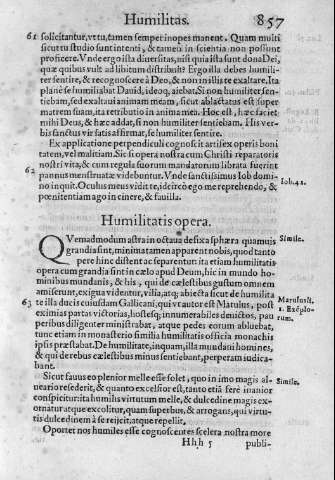 Humilitas. 857
61 solicitantur, vt tu, tamen semper inopes manent. Quam multi
sicut tu studio sunt intenti, & tamen in scientia non possunt
proficere. Vnde ergo ista diuersitas, nisi quia ista sunt dona Dei,
quæ quibus vult ad libitum distribuit? Ergo illa debes humili-
ter sentire, & recognoscere à Deo, & non in illis te exaltare. Ita
planè se humiliabat Dauid, ideoq; aiebat. Si non humiliter sen-
tiebam, sed exaltaui animam meam, sicut ablactatus est super
matrem suam, ita retributio in anima mea. Hoc est, hæc faciet
mihi Deus, & hæc addat, si non humiliter sentiebam. His ver-
bis sanctus vir satis affirmat, se humiliter sentire.
Ex applicatione perpendiculi cognoscit artifex operis boni
tatem, vel malitiam. Sic si opera nostra cum Christi reparatoris
62 nostri vita, & cum regula suorum mandatorum librata fuerint
pannus menstruatæ videbuntur. Vnde sanctissimus Iob domi-
no inquit. Oculus meus vidit te, idcirco ego me reprehendo, & Iob. 42.
pœnitentiam ago in cinere, & fauilla.
Humilitatis opera.
QVemadmodum astra in octaua defixa sphæra quamuis Simile.
grandia sint, minima tamen apparent nobis, quod tanto
pere hinc distent ac separentur: ita etiam humilitatis
opera cum grandia sint in cælo apud Deum, hic in mundo ho-
minibus mundanis, & his, qui de cælestibus gustum omnem
amiserunt, exigua videntur, vilia, atq; abiecta sicut de humilita
63 te illa ducis cuiusdam Gallicani, qui vt autor est Matulus, post Marulus l.
eximias partas victorias, hostesq; innumerabiles deuictos, pau 1. Exēplo-
peribus diligenter ministrabat, atque pedes eorum abluebat, rum.
tunc etiam in monasterio similia humilitatis officia monachis
ipsis præstabat. De humilitate, inquam, illa mundati homines,
& qui de rebus cælestibus minus sentiebant, perperam iudica-
bant.
Sicut fauus eo plenior melle esse solet, quo in imo magis al-
ueario resederit, & quanto excelsior est, tanto etiā ferè inanior Simile.
conspicitur: ita humilis virtutum melle, & dulcedine magis ex-
ornatur atque excolitur, quam superbus, & arrogans, qui virtu-
tis dulcedinem à se reijcit, atque repellit.
Oportet nos humiles esse cognoscentes scelera nostra more
Hhh 5 publi-